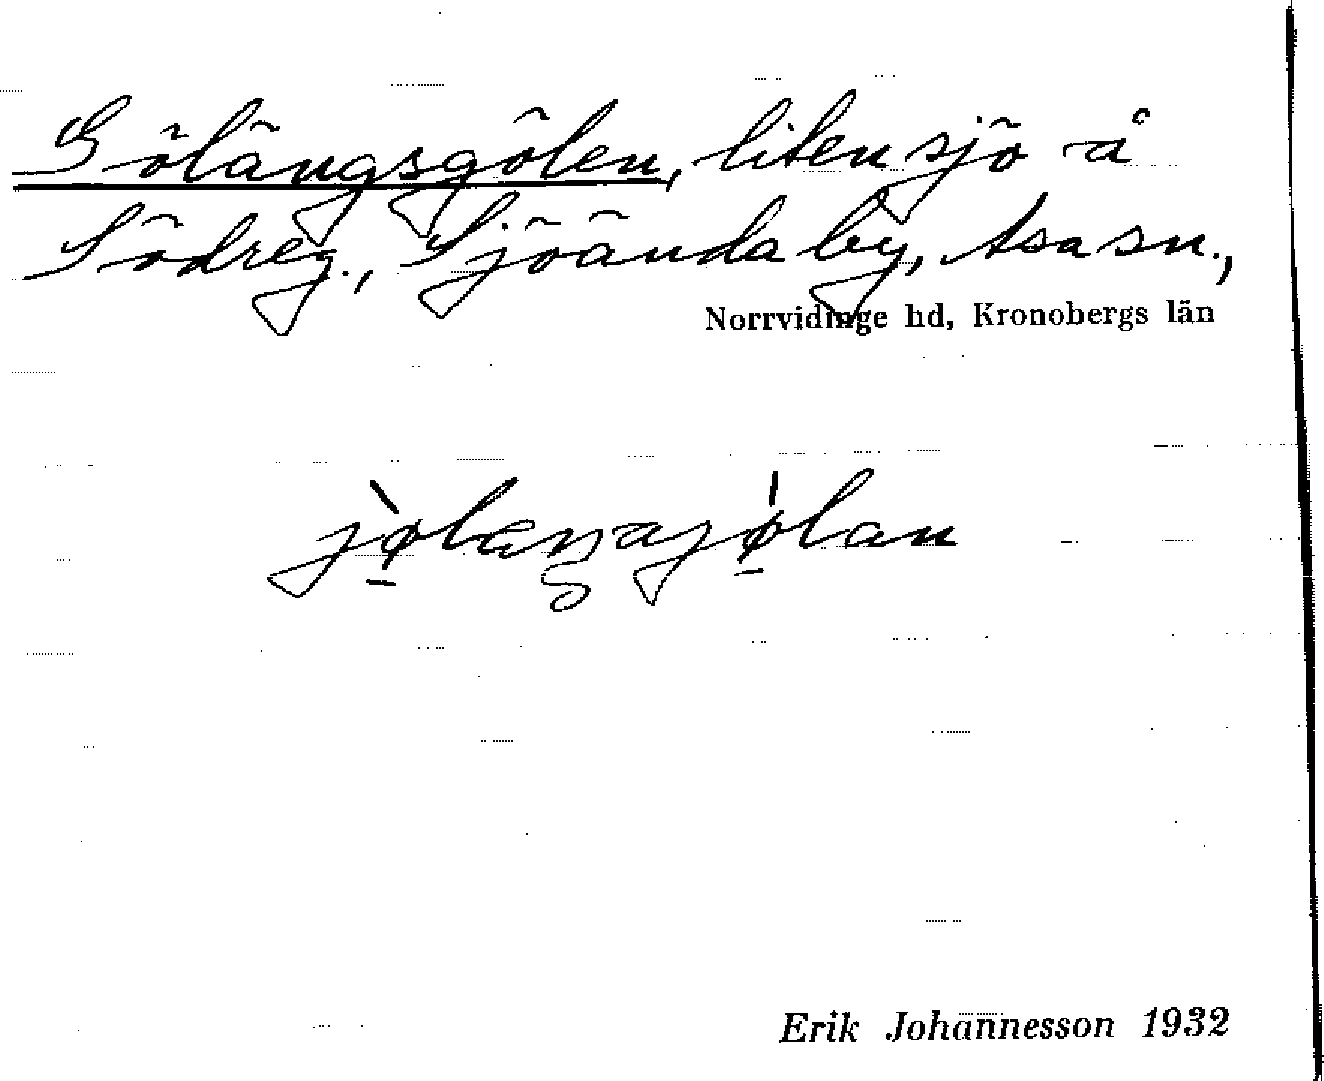 Gölängsgölen, liten sjö å
Södreg., Sjöända by, Asa sn.,
Norrvidinge hd, Kronobergs län
Erik Johannesson 1932